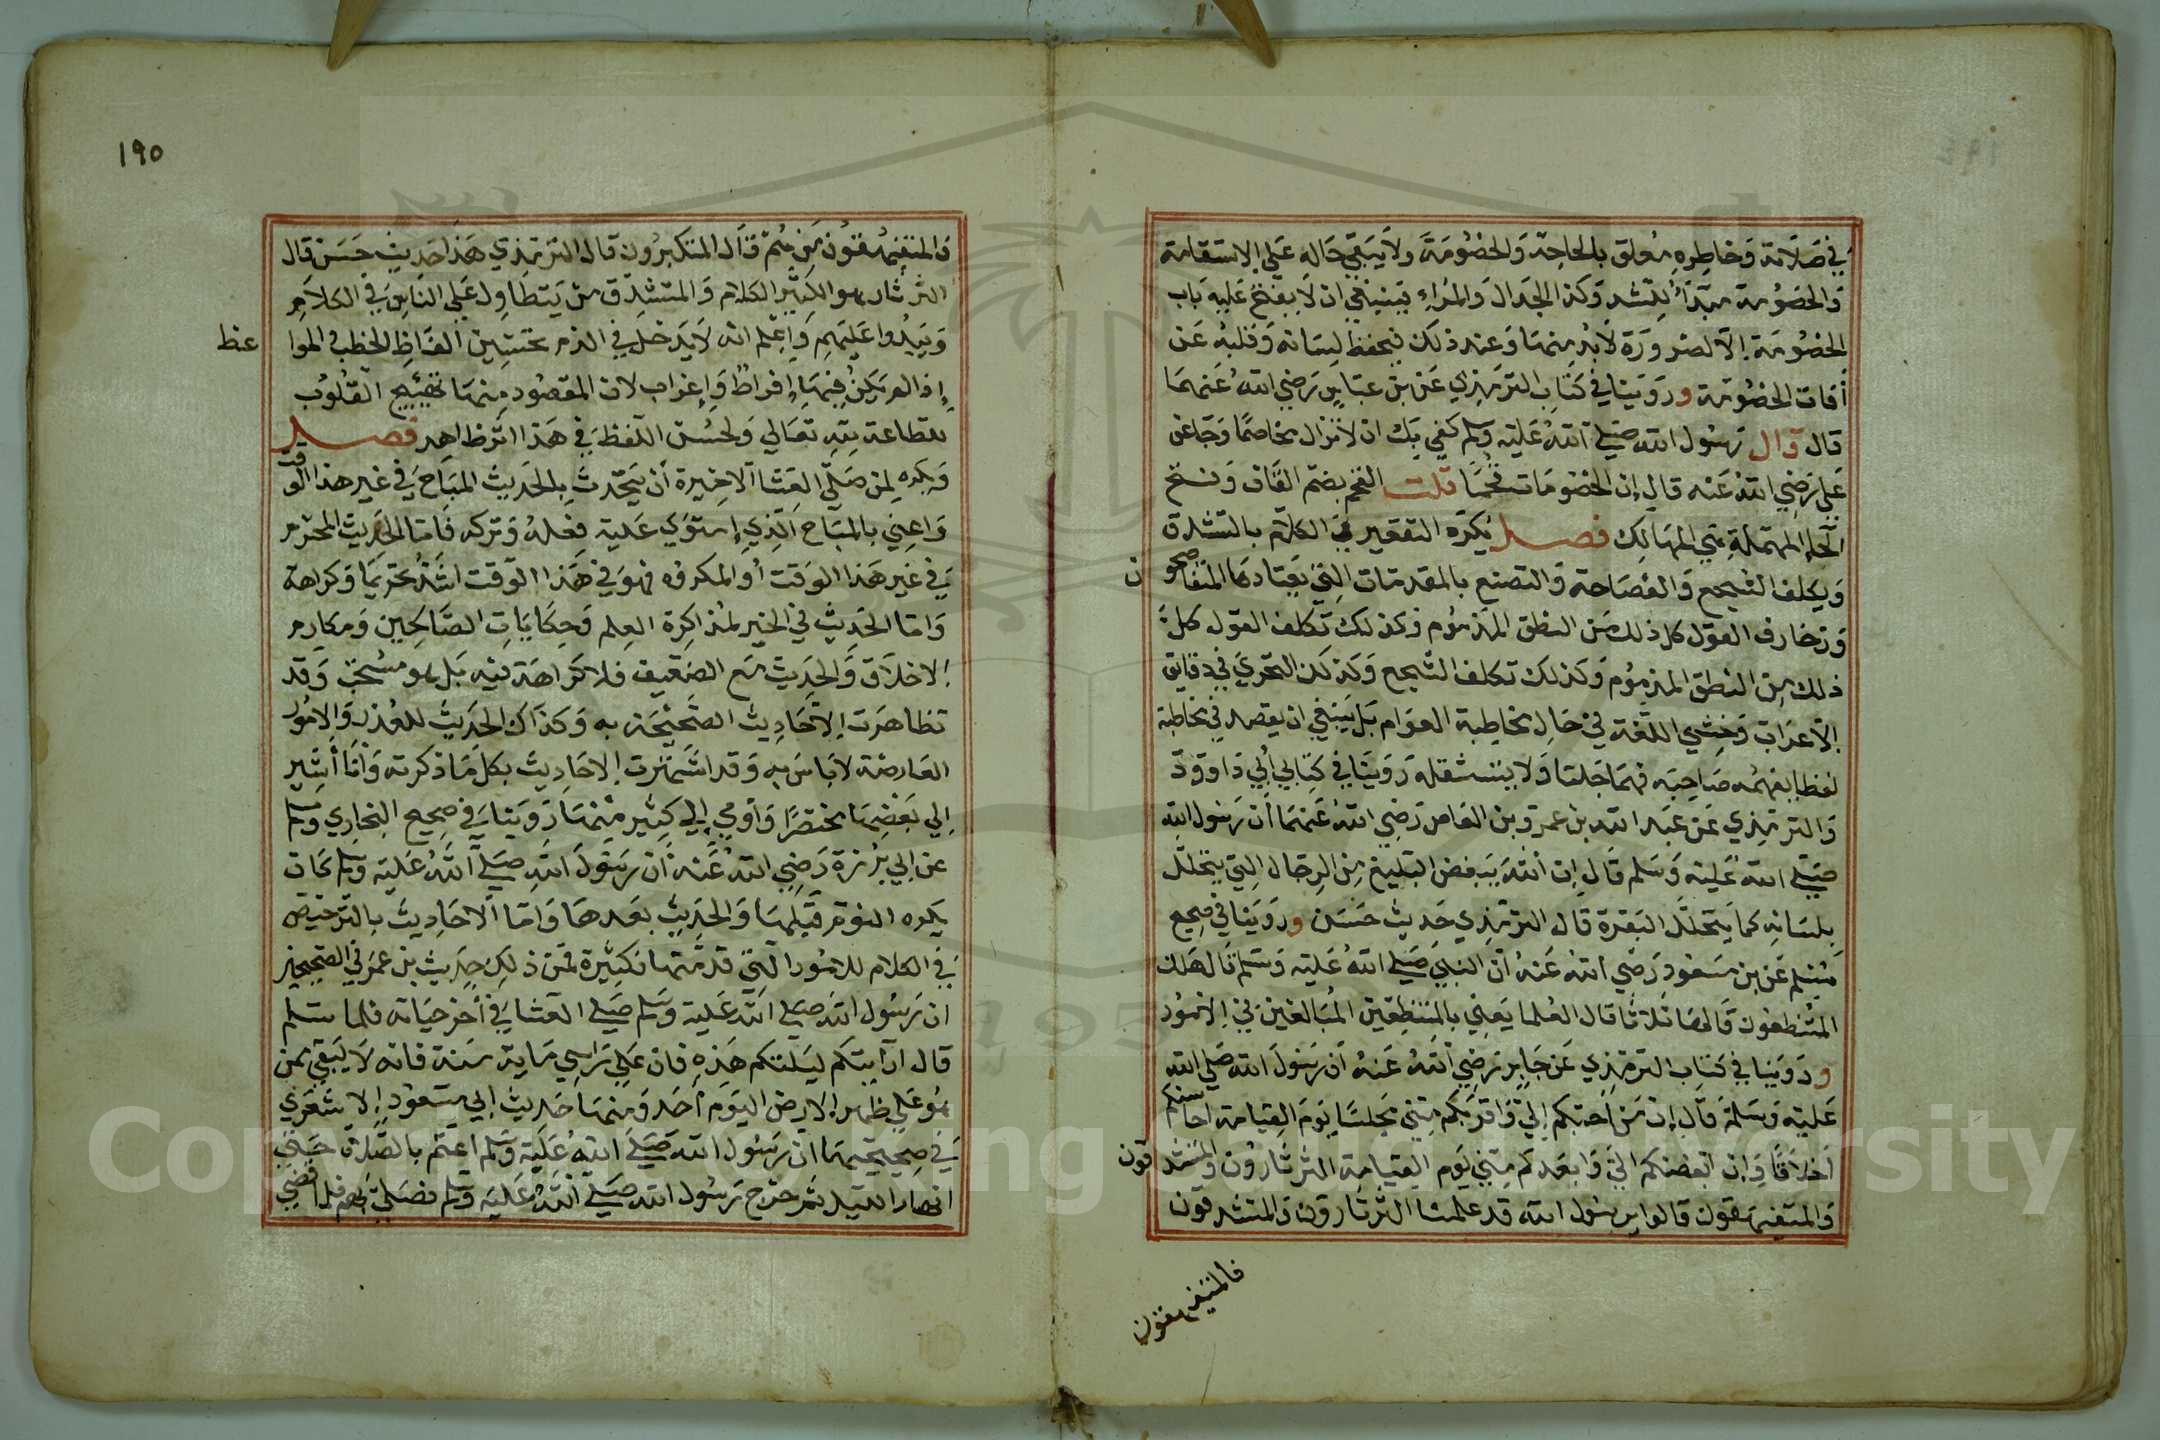 في صلاته وخاطره معلق بالحاجة والخصومة ولا يبقي حاله علي الاستقامة
والخصومة مبدأ للشر وكذا الجدال والمراء فينبغي ان لا يفتح عليه باب
الخصومة الا لضرورة لا بد منها وعند ذلك يحفظ لسانه وقلبه عن
أفات الخصومة وروينا في كتاب الترمذي عن بن عباس رضي الله عنهما
قال قال رسول الله صلي الله عليه وسلم كفي بك ان لا تزال مخاصما وجا عن
علي رضي الله عنه قال إن الخصومات قحما قلت القحم بضم القاف وفتح
الحاء المهملة هي المهالك فصل يكره التقعير في الكلام بالتشدق
ويكلف السجع والفصاحة والتصنع بالمقدمات التي يعتادها المتفاصحون
وزخارف القول كل ذلك من النطق المذموم وكذلك تكلف القول كل
ذلك من النطق المذموم وكذلك تكلف السجع وكذلك التحري في دقايق
الاعراب وحشي اللغة في حال مخاطبة العوام بل ينبغي ان يقصد في مخاطبة
لفظا يفهمه صاحبه فهما جليا ولا يستثقله روينا في كتابي أبي داوود
والترمذي عن عبد الله بن عمرو بن العاص رضي الله عنهما أن رسول الله
صلي الله عليه وسلم قال إن الله يبغض البليغ من الرجال الذي يتخلل
بلسانه كما يتخلل البقرة قال الترمذي حديث حسن وروينا في صحيح
مسلم عن بن مسعود رضي الله عنه أن النبي صلي الله عليه وسلم قال هلك
المتنطعون قالها ثلاثا قال العلما يعني بالمتنطعين المبالغين في الامور
وروينا في كتاب الترمذي عن جابر رضي الله عنه أن رسول الله صلي الله
عليه وسلم قال إن من أحبكم إلي واقربكم مني مجلسا يوم القيامة احاسنكم
اخلاقا وإن ابغضكم الي وابعدكم مني يوم القيامة الثرثارون والمتشدقون
والمتفيهقون قالوا يرسول الله قد علمنا الثرثارون والمتشدقون
فالمتفيهقون
١٩٥
والمتفيهقون من هم قال المتكبرون قال الترمذي هذا حديث حسن قال
الثرثار هو الكثير الكلام والمتشدق من يتطاول علي الناس في الكلام
ويبذوا عليهم واعلم انه لا يدخل في الذم تحسين الفاظ الخطب والمواعظ
إذا لم يكن فيها إفراط وإغراب لان المقصود منها تهييج القلوب
للطاعة لله تعالي ولحسن اللفظ في هذا اثر ظاهر فصل
ويكره لمن صلي العشا الاخيرة أن يتحدث بالحديث المباح في غير هذا الوقت
واعني بالمباح الذي إستوي عليه فعله وتركه فاما الحديث المحرم
في غير هذا الوقت أو المكروه فهو في هذا الوقت اشد تحريما وكراهة
واما الحديث في الخير لمذاكرة العلم وحكايات الصالحين ومكارم
الاخلاق والحديث مع الضعيف فلا كراهة فيه بل هو مستحب وقد
تظاهرت الاحاديث الصحيحة به وكذاك الحديث للعذر والامور
العارضة لا باس به وقد اشتهرت الاحاديث بكل ما ذكرته وأنا أشير
إلي بعضها مختصرا وأومي إلي كثير منها روينا في صحيح البخاري ومسلم
عن ابي برزة رضي الله عنه أن رسول الله صلي الله عليه وسلم كان
يكره النوم قبلها والحديث بعدها واما الاحاديث بالترخيص
في الكلام للامور التي قدمتها فكثيرة فمن ذلك حديث بن عمر في الصحيحين
ان رسول الله صلي الله عليه وسلم صلي العشا في أخر حياته فلما سلم
قال ارايتكم ليلتكم هذه فان علي راسي ماية سنة فانه لا يبقي ممن
هو علي ظهر الارض اليوم أحد ومنها حديث ابي مسعود الاشعري
في صحيحيهما ان رسول الله صلي الله عليه وسلم اعتم بالصلاة حتي
ابهار الليل ثم خرج رسول الله صلي الله عليه وسلم فصلي بهم فلما قضي
Copyright © King Saud University
1957